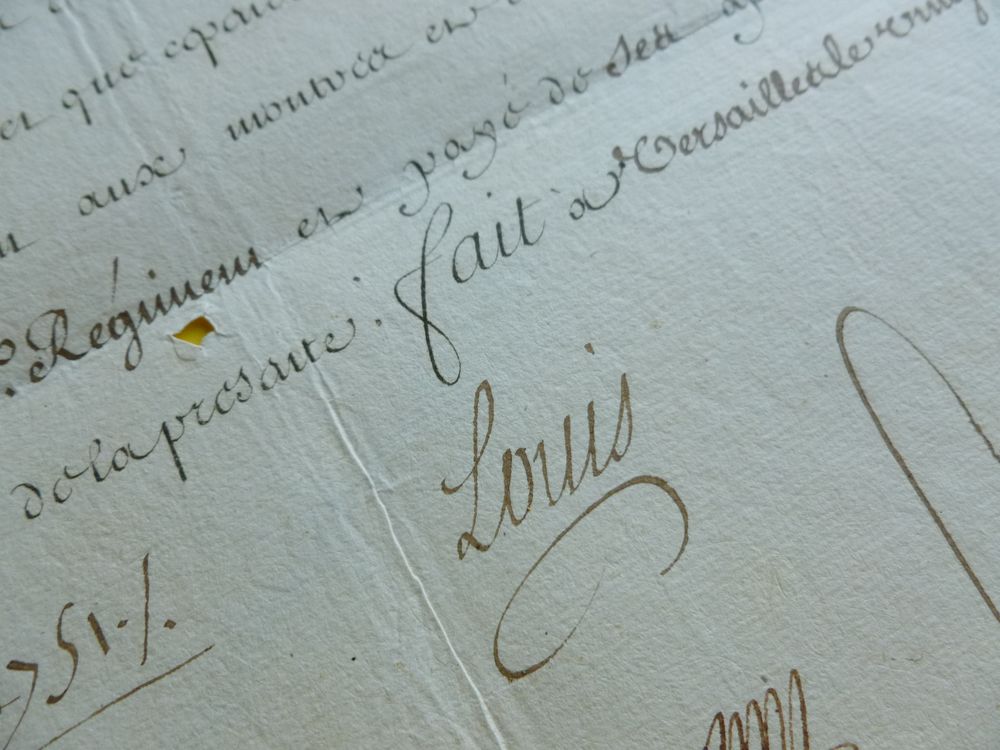 que
aux montrer en
Régiment et payé de ses
de la presante. fait à Versailles le vingt
Louis
751./.